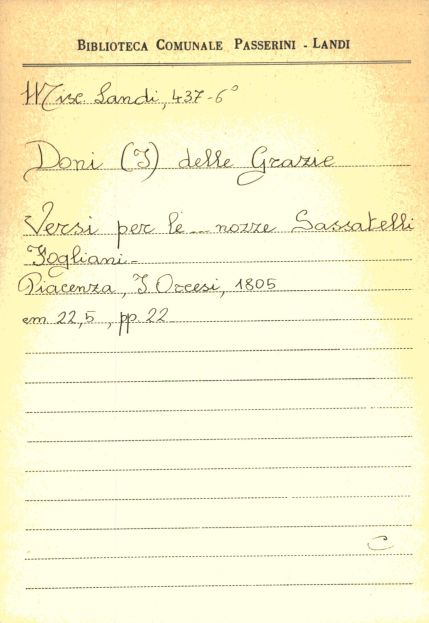 BIBLIOTECA COMUNALE PASSERINI - LANDI
Misc. Landi, 437-6°
Doni (I) delle Grazie
Versi per le ... nozze Sassatelli
Fogliani-
Piacenza, I. Orcesi, 1805
cm 22,5, pp. 22
C